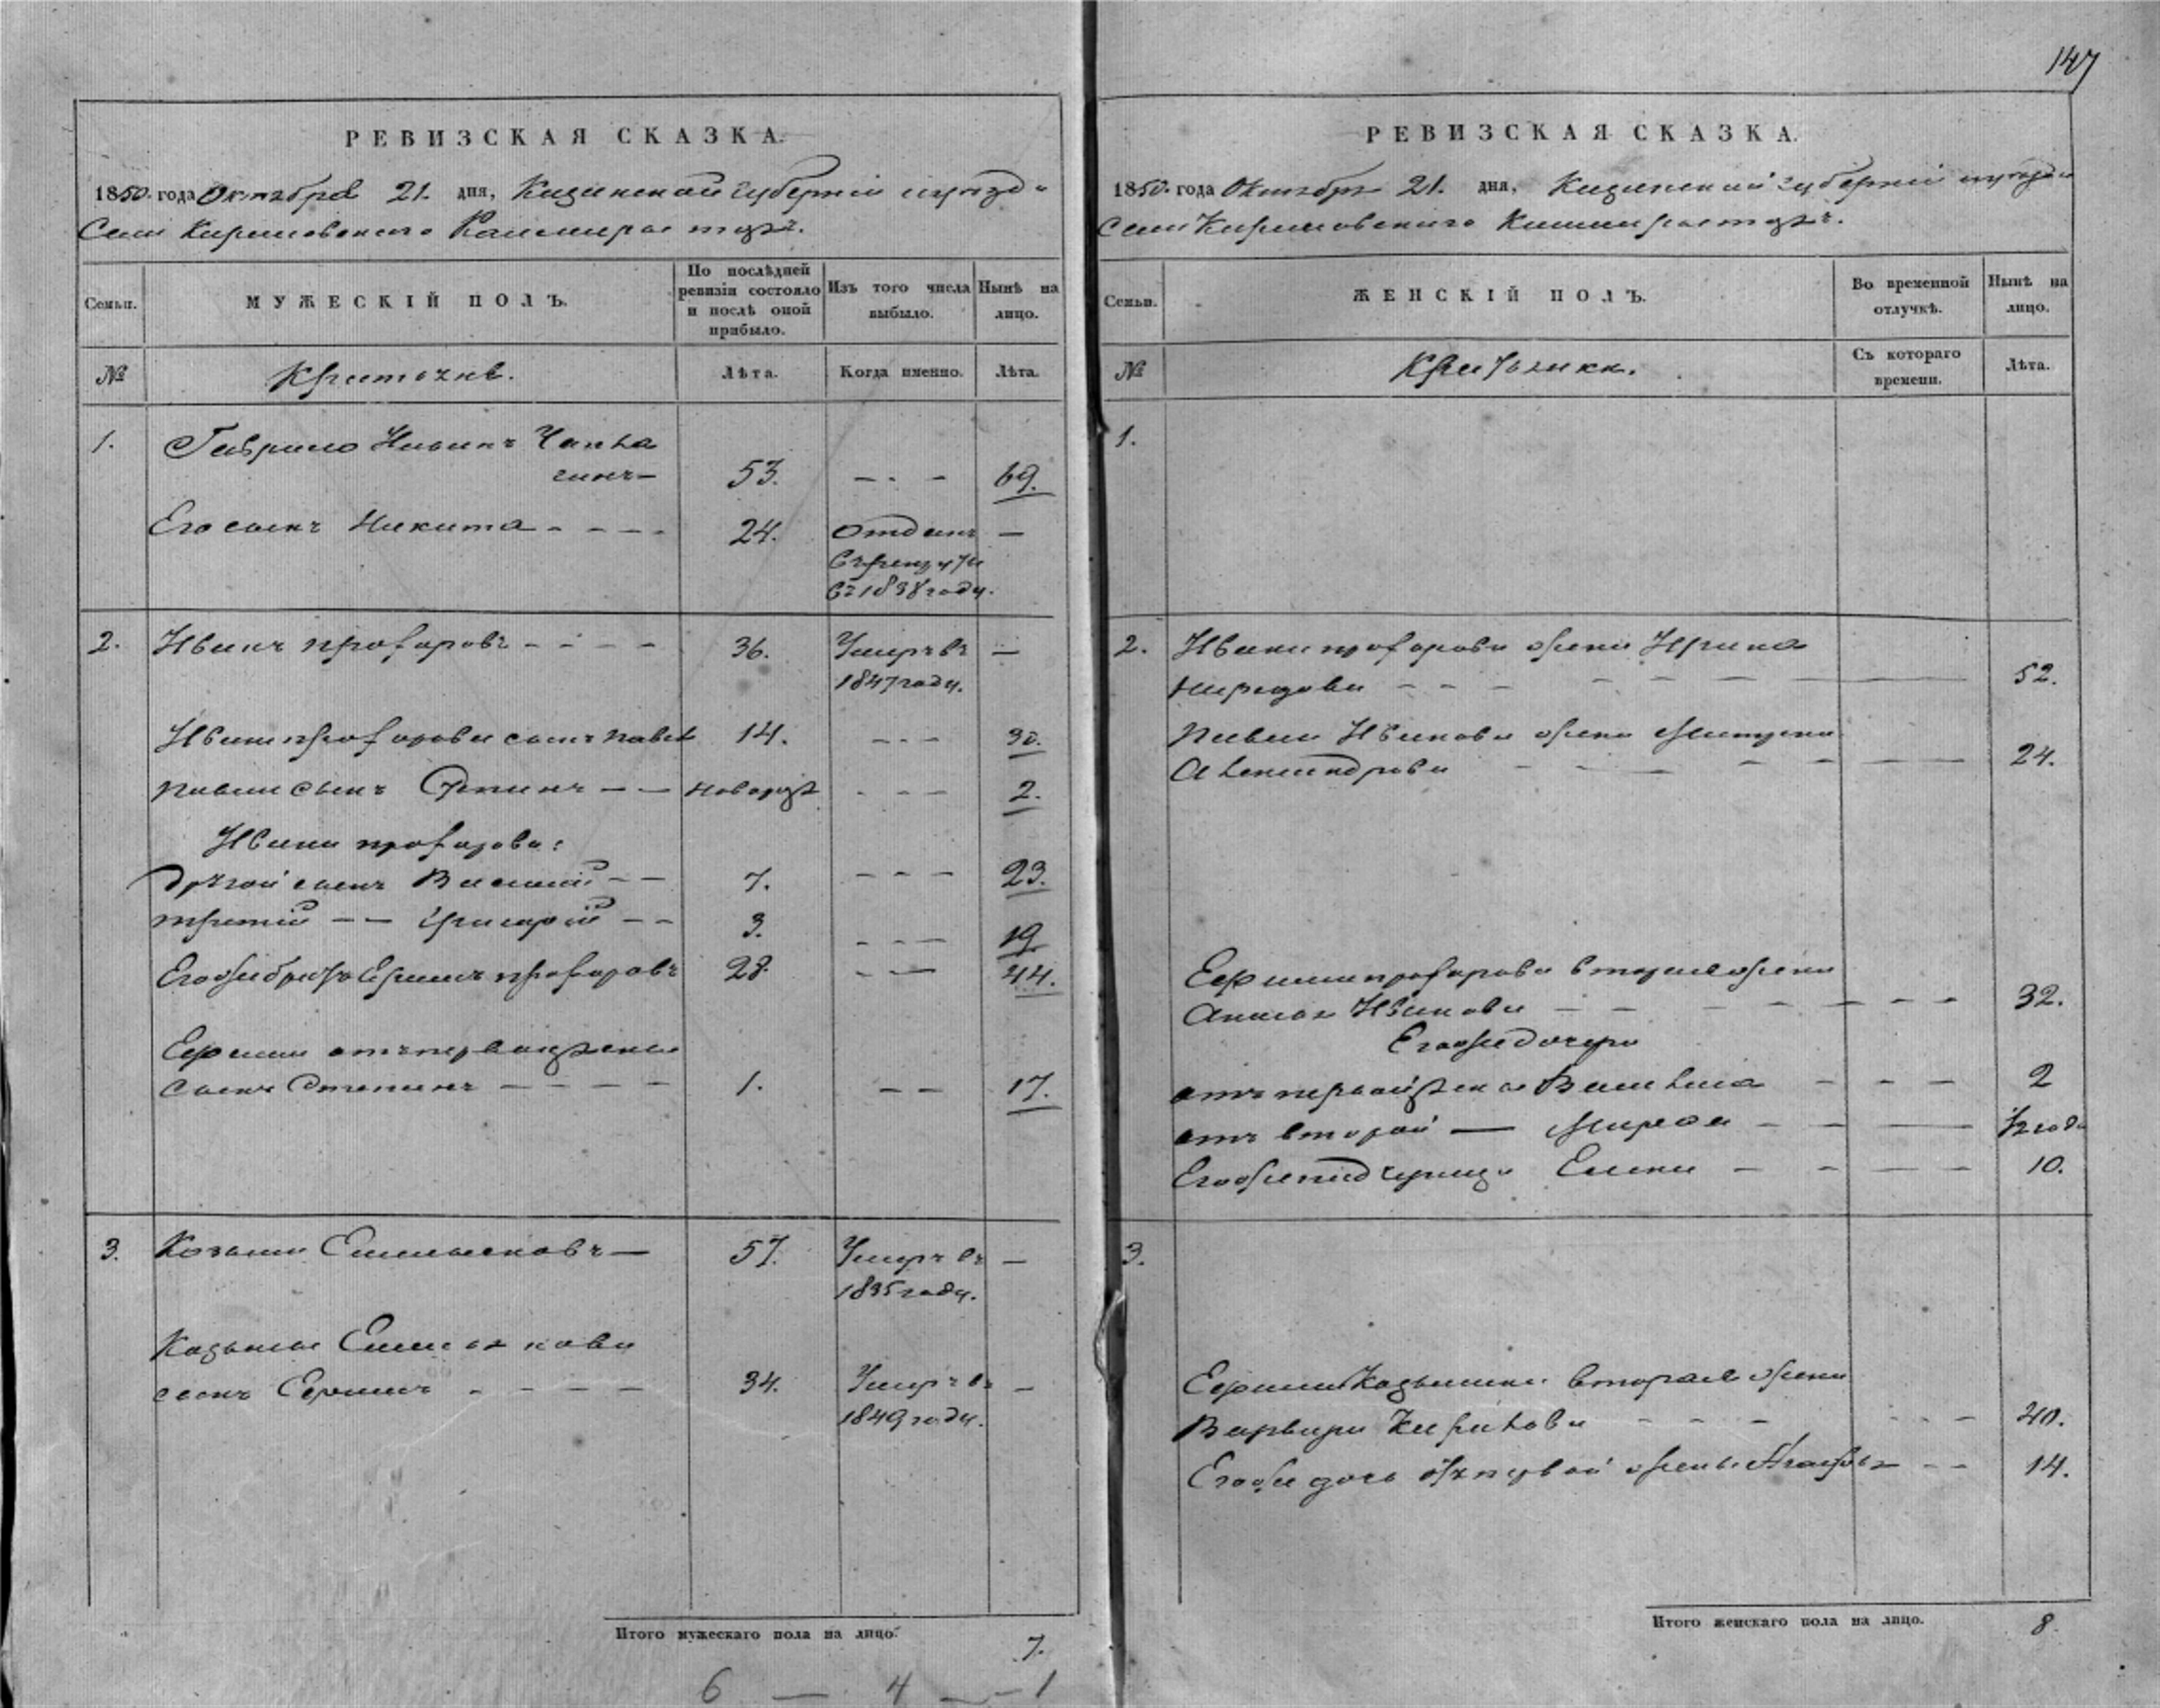 147
РЕВИЗСКАЯ СКАЗКА.
1850 года Октября 21. дня, Казанской губерніи и уезда
Села Кармовскаго
Семьи.
МУЖЕСКІЙ ПОЛЪ.
По послѣдней ревизіи состояло и послѣ оной прибыло.
Изъ того числа выбыло.
Нынѣ на лицо.
№
Крестьяне.
Лѣта.
Когда именно.
Лѣта.
1. Гаврило Иванъ
53. — . — 69.
Его сынъ Никита - - - - 24. Отданъ —
въ рекруты
въ 1838 году.
2. Иванъ Прохоровъ - - - - 36. Умеръ въ —
1847 году.
Ивана Прохорова сынъ Павел 14. - - - 30.
Павла сынъ Степанъ — — новорож - - - 2.
Ивана Прохорова:
другой сынъ Василий - - 7. - - - 23.
третий — — Григорий - - 3. - - - 19
Его же братъ Ефимъ Прохоровъ 28. - — 44.
Ефима отъ первой жены
сынъ Степанъ - - - - 1. — — 17.
3. Козьма Емельяновъ — 57. Умеръ въ —
1835 году.
Козьмы Емельянова
сынъ Ефимъ - - - - 34. Умеръ въ —
1849 году.
Итого мужескаго пола на лицо. 7.
6 — 4 — 1
РЕВИЗСКАЯ СКАЗКА.
1850 года Октября 21. дня, Казанской губерніи и уезда
Села Кармовскаго
Семьи.
ЖЕНСКІЙ ПОЛЪ.
Во временной отлучкѣ.
Нынѣ на лицо.
№
Съ котораго времени.
Лѣта.
1.
2. Ивана Прохорова жена Ирина
52.
Павла Иванова жена Матрена
Александрова 24.
Ефима Прохорова вторая жена
Иванова 32.
Его же дочери
отъ первой жены Василиса - - — 2
отъ второй — Марья - - — 1/2 года
Его же падчерица Елена — - — — 10.
3.
Ефима Козьмина вторая жена
Варвара 40.
Его же дочь отъ первой жены - - 14.
Итого женскаго пола на лицо. 8.